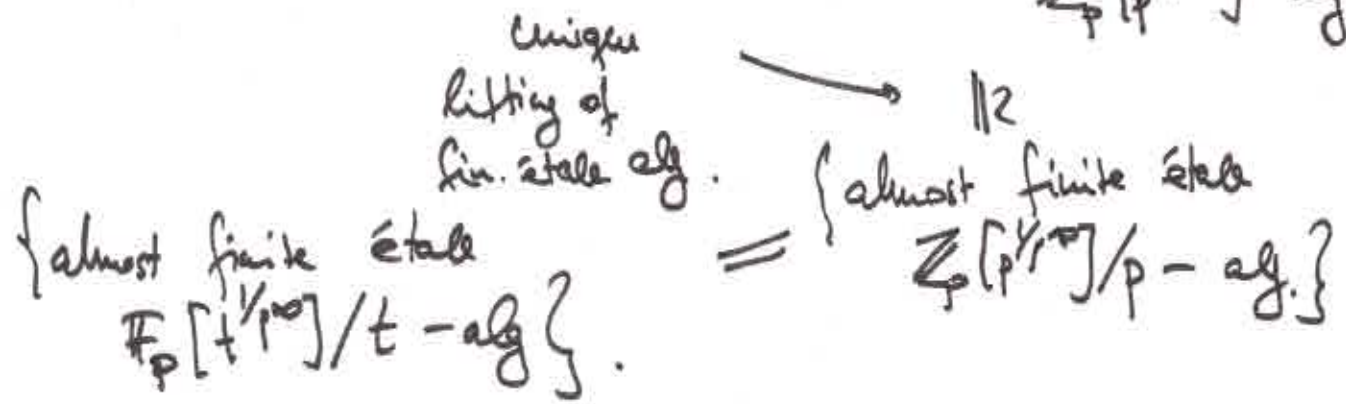 unique
lifting of
fin. étale alg.
||2
{almost finite étale
F_p[t^{1/p^∞}]/t - alg}.
=
{almost finite étale
Z_p[p^{1/p^∞}]/p - alg.}